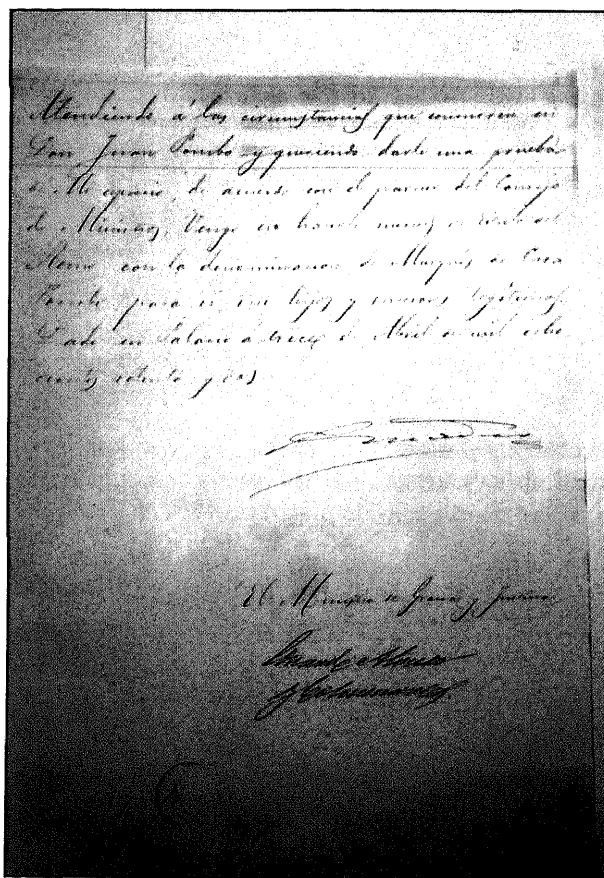 Atendiendo á las circunstancias que concurren en
Don Juan Pombo y queriendo darle una prueba
de Mi aprecio, de acuerdo con el parecer del Consejo
de Ministros, Vengo en hacerle merced de título del
Reino con la denominacion de Marqués de Casa
Pombo para sí, sus hijos y sucesores legítimos
Dado en Palacio á trece de Abril de mil ocho
cientos setenta y dos
Amadeo
El Ministro de Gracia y Justicia,
Alonso
y Colmenares